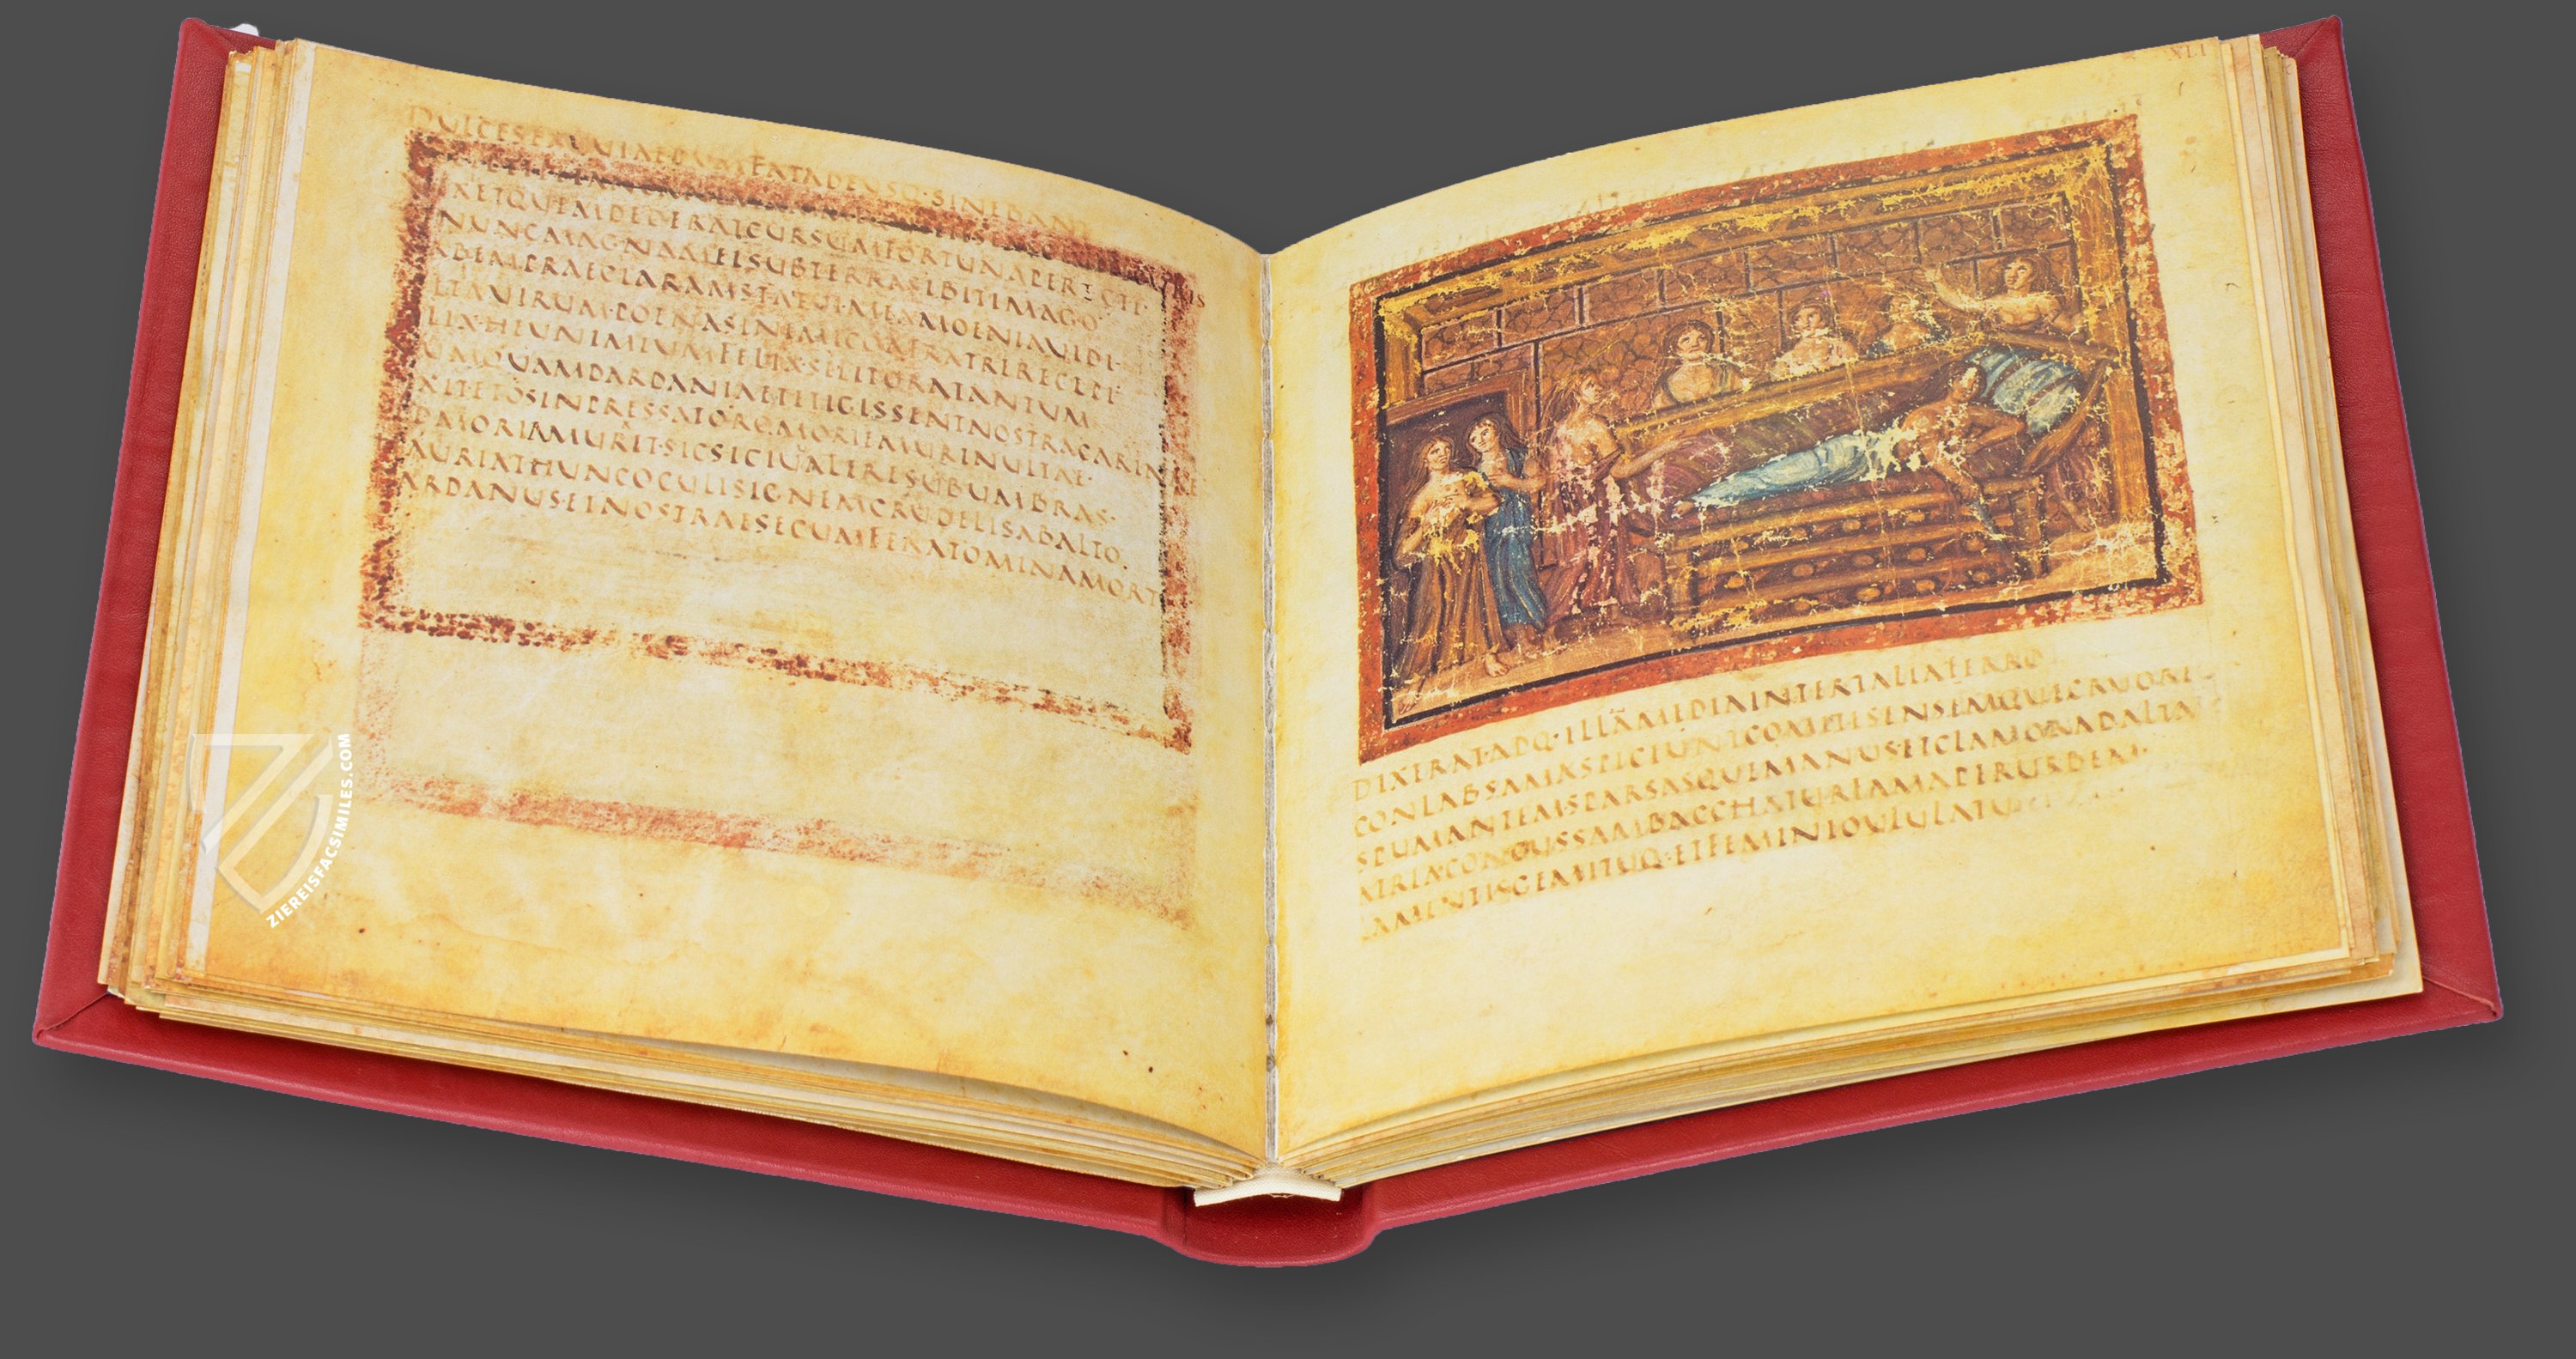 DULCESEXUUIAEDUMFATADEUSQ·SINEBANT
UIXIETQUEMDEDERATCURSUMFORTUNAPEREGI·
NUNCMAGNAMEISUBTERRASIBITIMAGO
URBEMPRAECLARAMSTATUI·MEAMOENIAUIDI·
ULTAUIRUM·POENASINIMICOAFRATRERECEPI
FELIX·HEUNIMIUMFELIX·SILITORATANTUM
NUMQUAMDARDANIAETETIGISSENTNOSTRACARINAE
DIXITETOSINPRESSATORO·MORIEMURINULTAE·
SEDMORIAMUR·AIT·SICSICIUUATIRESUBUMBRAS·
HAURIATHUNCOCULISIGNEMCRUDELISABALTO·
DARDANUS·ETNOSTRAESECUMFERATOMINAMORTIS
XLI
DIXERAT·ADQ·ILLAMMEDIAINTERTALIAFERRO
CONLABSAMASPICIUNTCOMITESENSEMQUECRUORE
SPUMANTEMSPARSASQUEMANUS·ITCLAMORADALTA
ATRIA·CONCUSSAMBACCHATURFAMAPERURBEM·
LAMENTISGEMITUQ·ETFEMINEOULULATU
ZIEREISFACSIMILES.COM